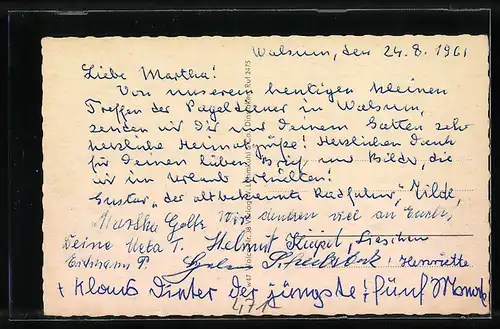 Walsum, den 24.8.1961
Liebe Martha!
Von unserem heutigen kleinen
Treffen der Pageldiener in Walsum,
senden wir Dir und Deinem Gatten sehr
herzliche Heimatgrüße! Herzlichen Dank
für Deinen lieben Brief und Bilder, die
wir im Urlaub erhielten!
Gustav, "der altbekannte Radfahrer", Hilde,
Martha Golfs Wir denken viel an Euch,
Deine Meta T. Helmut Lieschen
Erdmann P. Henriette
+ Klaus Dieter der jüngste: fünf Monate
471